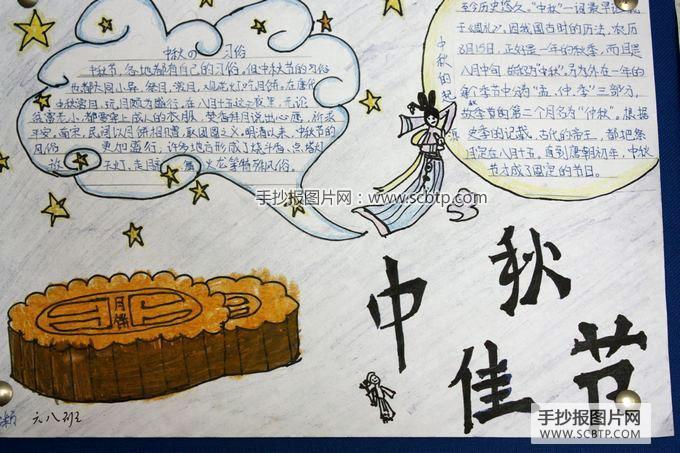 中秋の习俗
中秋节，各地都有自己的习俗，但中秋节的习俗
也都大同小异。祭月，赏月，观花灯，吃月饼。在唐代
中秋赏月，玩月颇为盛行，在八月十五这一夜里，无论
贫富老小，都要穿上成人的衣服，焚香拜月说出心愿，祈求
平安。南宋，民间以月饼相赠，取团圆之义。明清以来，中秋节的
风俗更加盛行，许多地方形成了烧斗香、点塔灯
放天灯、走月亮、舞火龙等特殊风俗。
中秋的起源
至今历史悠久。“中秋”一词最早记载于
《周礼》，因我国古时的历法，农历
8月15日，正好是一年的秋季，而且是
八月中旬，故称为“中秋”。另为外在一年的
每个季节中分为“孟、仲、季”三部分，
故季节的第二个月名为“仲秋”。根据
史季的记载，古代的帝王，都把祭
月定在八月十五。直到唐朝初年，中秋
节才成了固定的节日。
手抄报图片网：www.scbtp.com
月饼
中秋
佳节
六八班
手抄报图片网
WWW.SCBTP.COM